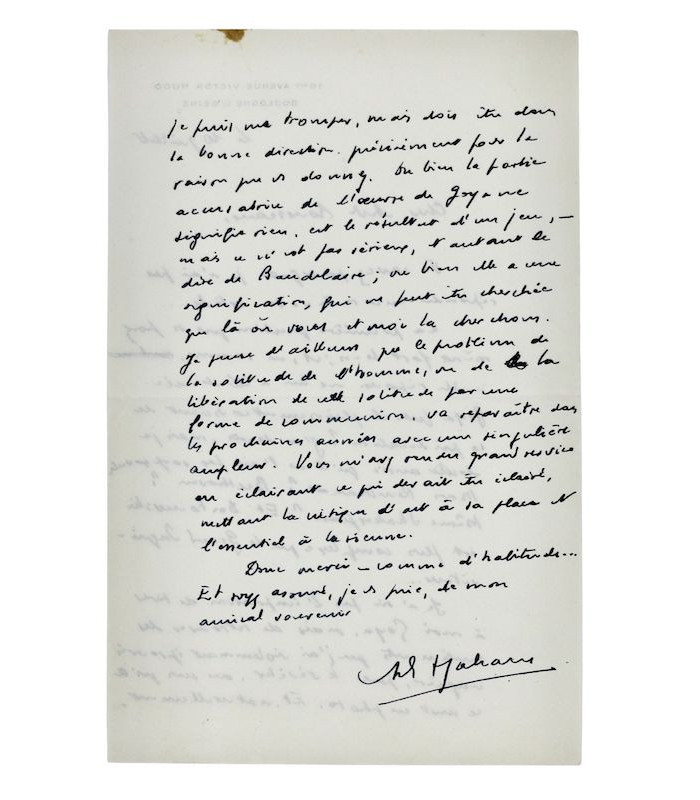 je puis me tromper, mais dois être dans
la bonne direction, précisément pour la
raison que vs donnez. Ou bien la partie
accusatrice de l'œuvre de Goya ne
signifie rien, est le résultat d'un jeu, –
mais ce n'est pas sérieux, et autant le
dire de Baudelaire ; ou bien elle a une
signification, qui ne peut être cherchée
que là où vous et moi la cherchons.
Je pense d'ailleurs que le problème de
la solitude de l'homme, ou de la
libération de cette solitude par une
forme de communion, va reparaître dans
les prochaines années avec une singulière
ampleur. Vous m'avez rendu grand service
en éclairant ce qui devait être éclairé,
mettant la critique d'art à sa place et
l'essentiel à la sienne.
Donc merci – comme d'habitude...
Et soyez assuré, je vs prie, de mon
amical souvenir